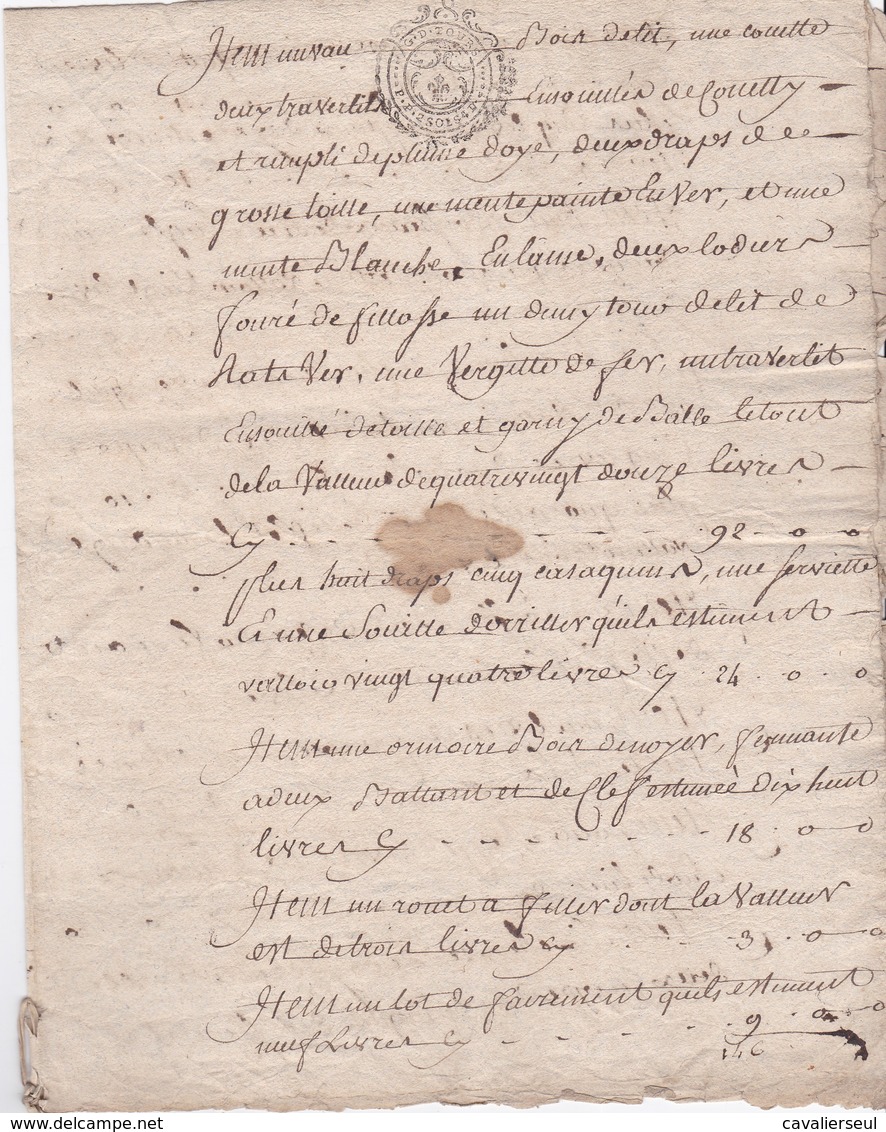 Item un vau Bois delit, une couitte
G.D.TOURS
P.P.2SOLS4D.
deux traverlits Ensouillés de Couetty
et rempli de plume doye, deux draps de
grosse toille, une mente painte En Ver, et une
mente Blanche En laine, deux lodiers
fouré de fillasse un demy tour delit de
Ras Ver, une Vergette de fer, un traverlit
Ensouillé de toille et garny de Balle le tout
dela Valleur de quatrevingt douze livres
Cy 92 . o . o
plus huit draps cinq casaquins, une serviette
Et une Souille dorillier quils estiment
valloir vingt quatre livres Cy . 24 . o . o
Item une ormoire Bois denoyer, fermante
a deux Battant et de Clef estimée dix huit
livres Cy 18 . o o
Item un rouet a filler dont la Valleur
est de trois livres Cy 3 . o o
Item un lot de ferrement quils estiment
neuf Livres Cy 9 . o o
146
cavalierseul